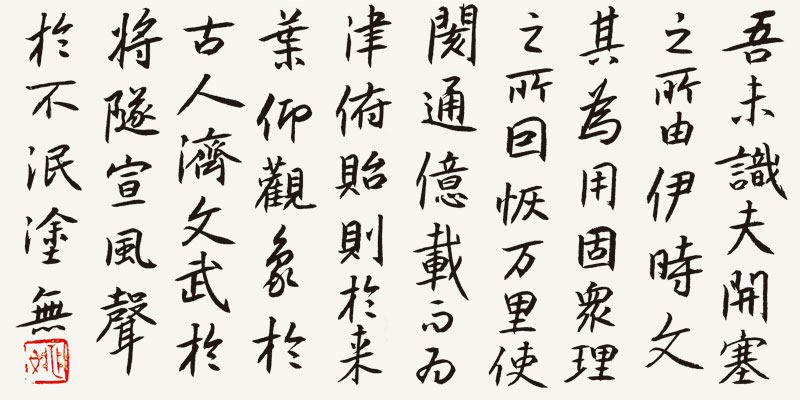 吾未識夫開塞
之所由伊時文
其為用固衆理
之所囙恢万里使
閡通億載而为
津俯貽則於来
葉仰觀象於
古人濟文武於
将隧宣風聲
於不泯塗無